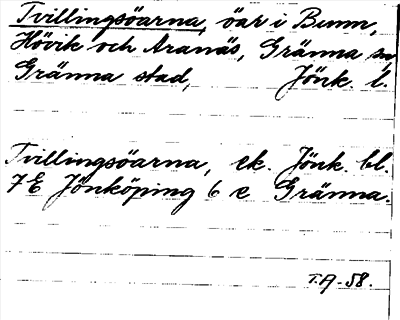 Tvillingsöarna, öar i Bunn,
Hövik och Aranäs, Gränna sn,
Gränna stad, Jönk. l.
Tvillingsöarna, ek. Jönk. bl.
7E Jönköping 6 e Gränna.
T.A-58.